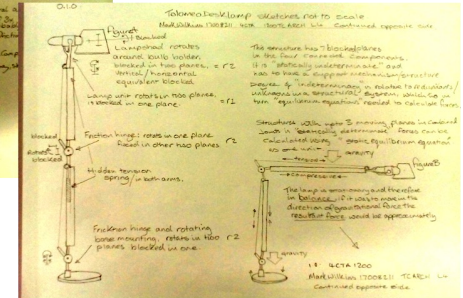 0.1.0
Talomea Desk lamp sketches not to scale
Mark Wilkins 1700821 4CTA 1200 ARCH L4 Continued opposite side
Figure 1
Lamp head rotates
around bulb holder,
blocked in two planes. = r2
Vertical / horizontal
equivalent blocked
Lamp unit rotates in two planes,
is blocked in one plane. = r1
blocked
rotates
blocked
Friction hinge; rotates in one plane
fixed in other two planes r2
Hidden tension
spring/ in both arms.
Friction hinge and rotating
base mounting. rotates in two r2
planes blocked in one.
The structure has 7 blocked planes
in the four moveable components.
it is "statically indeterminate" and
has to have a support mechanism/structure
Degree of indeterminacy is related to redundants/
unknowns in a structural system, which is in
turn "equilibrium equations" needed to calculate forces.
Structures with up to 3 moving planes in combined
joints is "statically determinate" forces can be
calculated using "static equilibrium equation"
gravity
Figure B
The lamp is stationary and therefore
in balance, if it was to move in the
direction of gravitational force the
resultant force would be approximately
gravity
4CTA 1200
Mark Wilkins 1700821 ARCH L4
Continued opposite side